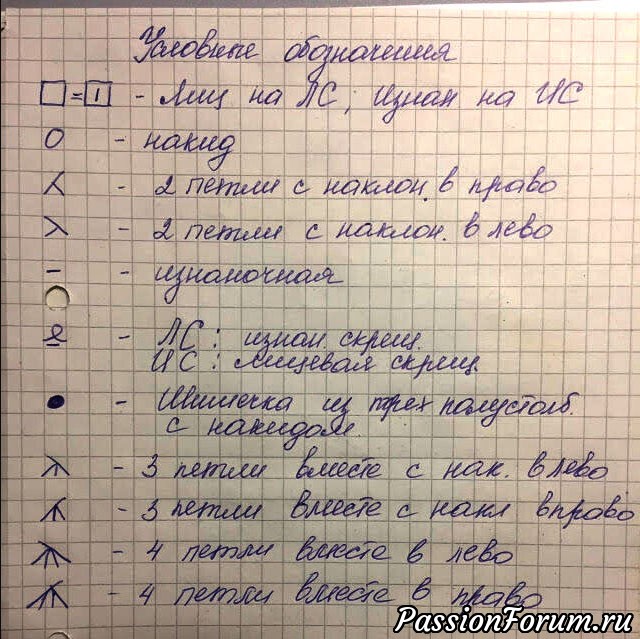 Условные обозначения
□ = | - Лиц на ЛС; Изнан на ИС
O - накид
⋌ - 2 петли с наклон. в право
⋋ - 2 петли с наклон. в лево
– - изнаночная
- ЛС: изнан. скрещ.
ИС: лицевая скрещ.
● - Шишечка из трех полустолб.
с накидом.
- 3 петли вместе с нак. в лево
- 3 петли вместе с накл вправо
- 4 петли вместе в лево
- 4 петли вместе в право
PassionForum.ru